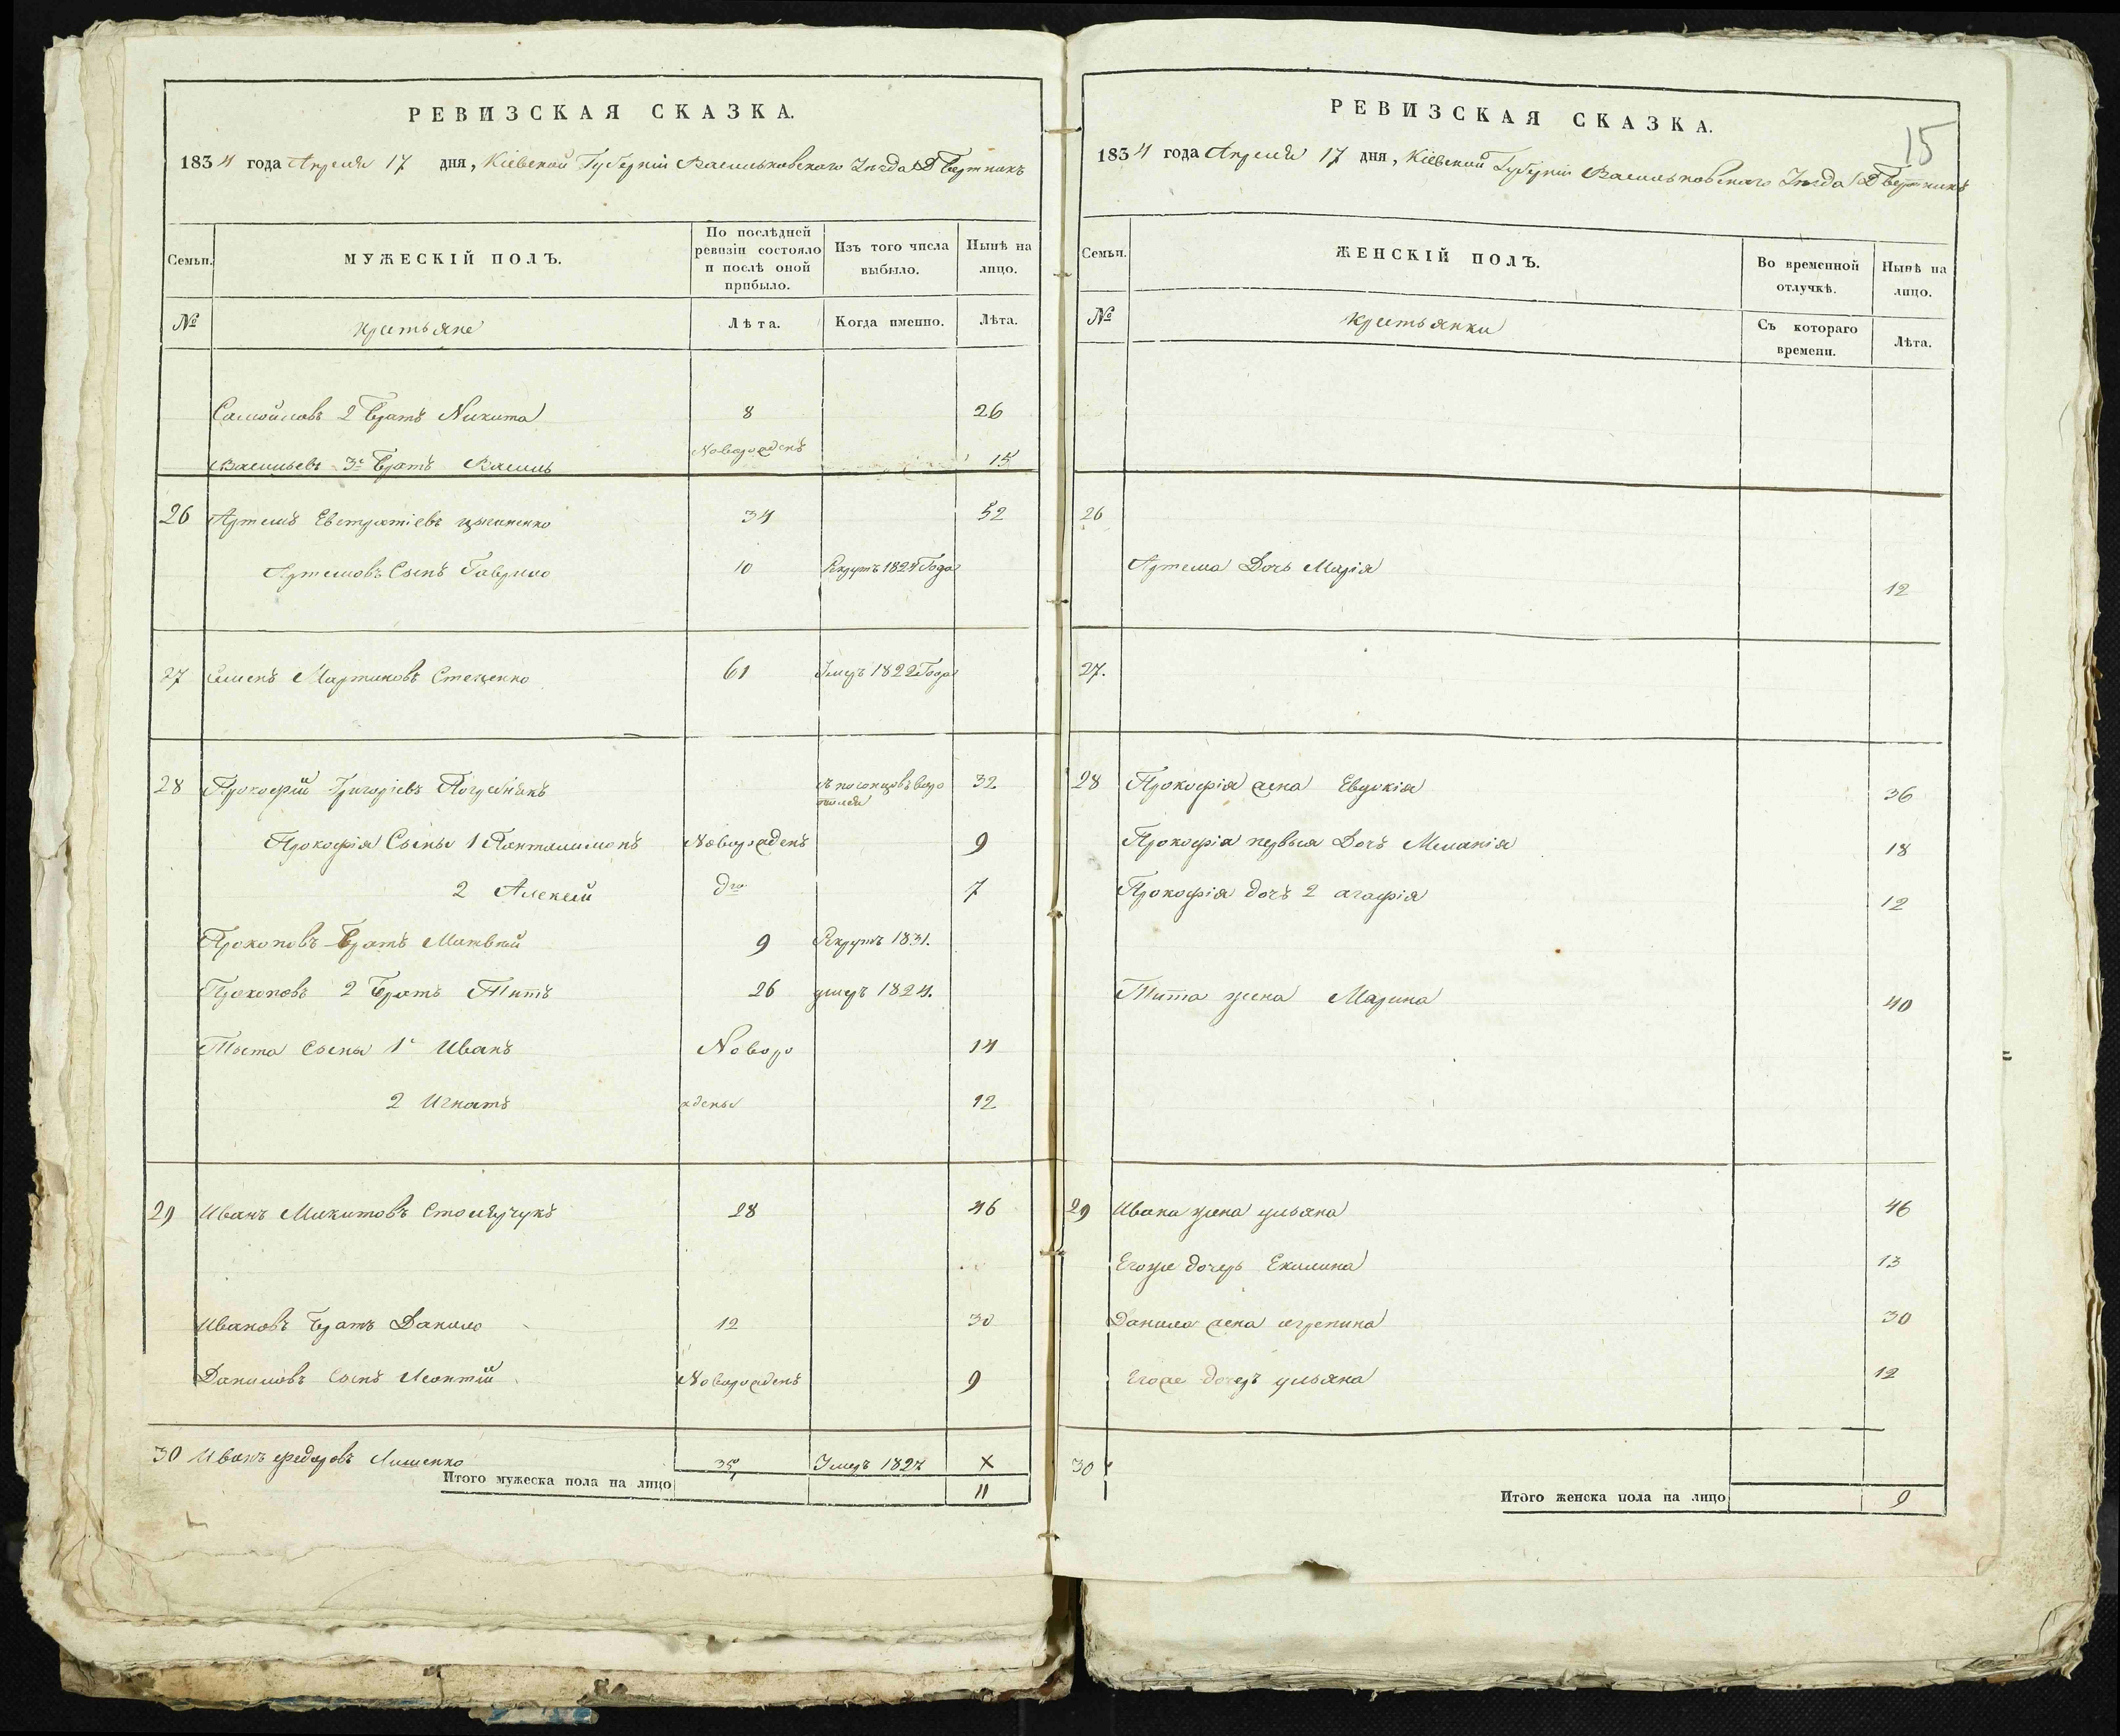 РЕВИЗСКАЯ СКАЗКА.
1834 года Апреля 17 дня, Кіевской Губерніи Васильковскаго Уезда
Семьи.
МУЖЕСКІЙ ПОЛЪ.
По послѣдней ревизіи состояло и послѣ оной прибыло.
Изъ того числа выбыло.
Нынѣ на лицо.
№
крестьяне
Лѣта.
Когда именно.
Лѣта.
Самойловъ 2 братъ Никита 8 26
Васильевъ 3й братъ Василь Новорожденъ 15
26 Артемъ Евстратіевъ 34 52
Артемовъ Сынъ Гаврило 10 Рекрутъ 1824 Года
27 Семенъ Мартиновъ Стеценко 61 Умеръ 1822 Года
28 Прокофій Григоріевъ Погребнякъ 32
Прокофія Сыны 1 Пантилимонъ Новорожденъ 9
2 Алексей дто 7
Прокоповъ братъ Матвей 9 Рекрутъ 1831.
Прокоповъ 2 братъ Титъ 26 умеръ 1824.
Тыта Сыны 1й Иванъ Новоро 14
2 Игнатъ ждены 12
29 Иванъ Микитовъ Столярчукъ 28 46
Ивановъ братъ Данило 12 30
Даниловъ сынъ Леонтій Новорожденъ 9
30 Иванъ Федоровъ 35 Умеръ 1827 X
Итого мужеска пола на лицо 11
15
РЕВИЗСКАЯ СКАЗКА.
1834 года Апреля 17 дня, Кіевской Губерніи Васильковскаго Уезда
Семьи.
ЖЕНСКІЙ ПОЛЪ.
Во временной отлучкѣ.
Нынѣ на лицо.
№
крестьянки
Съ котораго времени.
Лѣта.
26
Артема Дочь Марія 12
27.
28 Прокофія жена Евдокія 36
Прокофія первая Дочъ Меланія 18
Прокофія дочъ 2 агафія 12
Тита жена Марина 40
29 Ивана жена ульяна 46
Егоже дочеръ Екилина 13
Данила жена агрепина 30
Егоже дочеръ ульяна 12
30
Итого женска пола на лицо 9